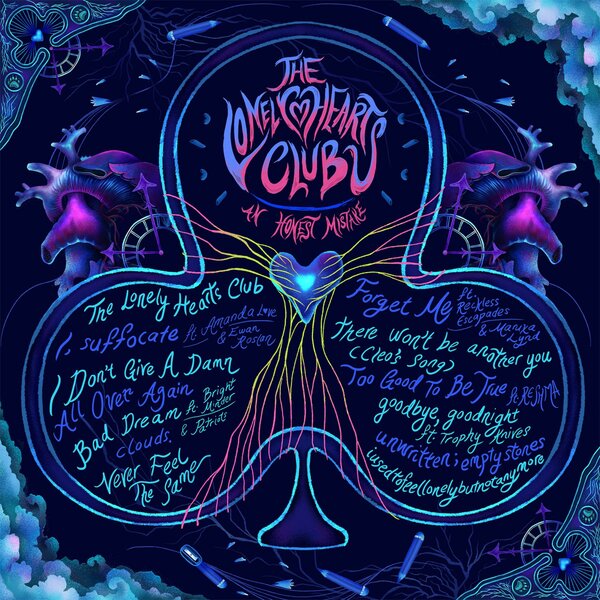 THE
LONELY HEARTS
CLUB
AN HONEST MISTAKE
The Lonely Hearts Club
I, suffocate ft Amanda Love
& Ewan
Roslan
I Don't Give A Damn
All Over Again
Bad Dream ft Bright
& Murder
Patriots
clouds.
Never Feel
The Same
Forget Me ft.
Reckless
Escapades
& Marixa
Lynd
there won't be another you
(Cleo's Song)
Too Good To Be True ft RESHMA
goodbye, goodnight
ft. Trophy Knives
unwritten; empty stones
iusedtofeellonelybutnotanymore